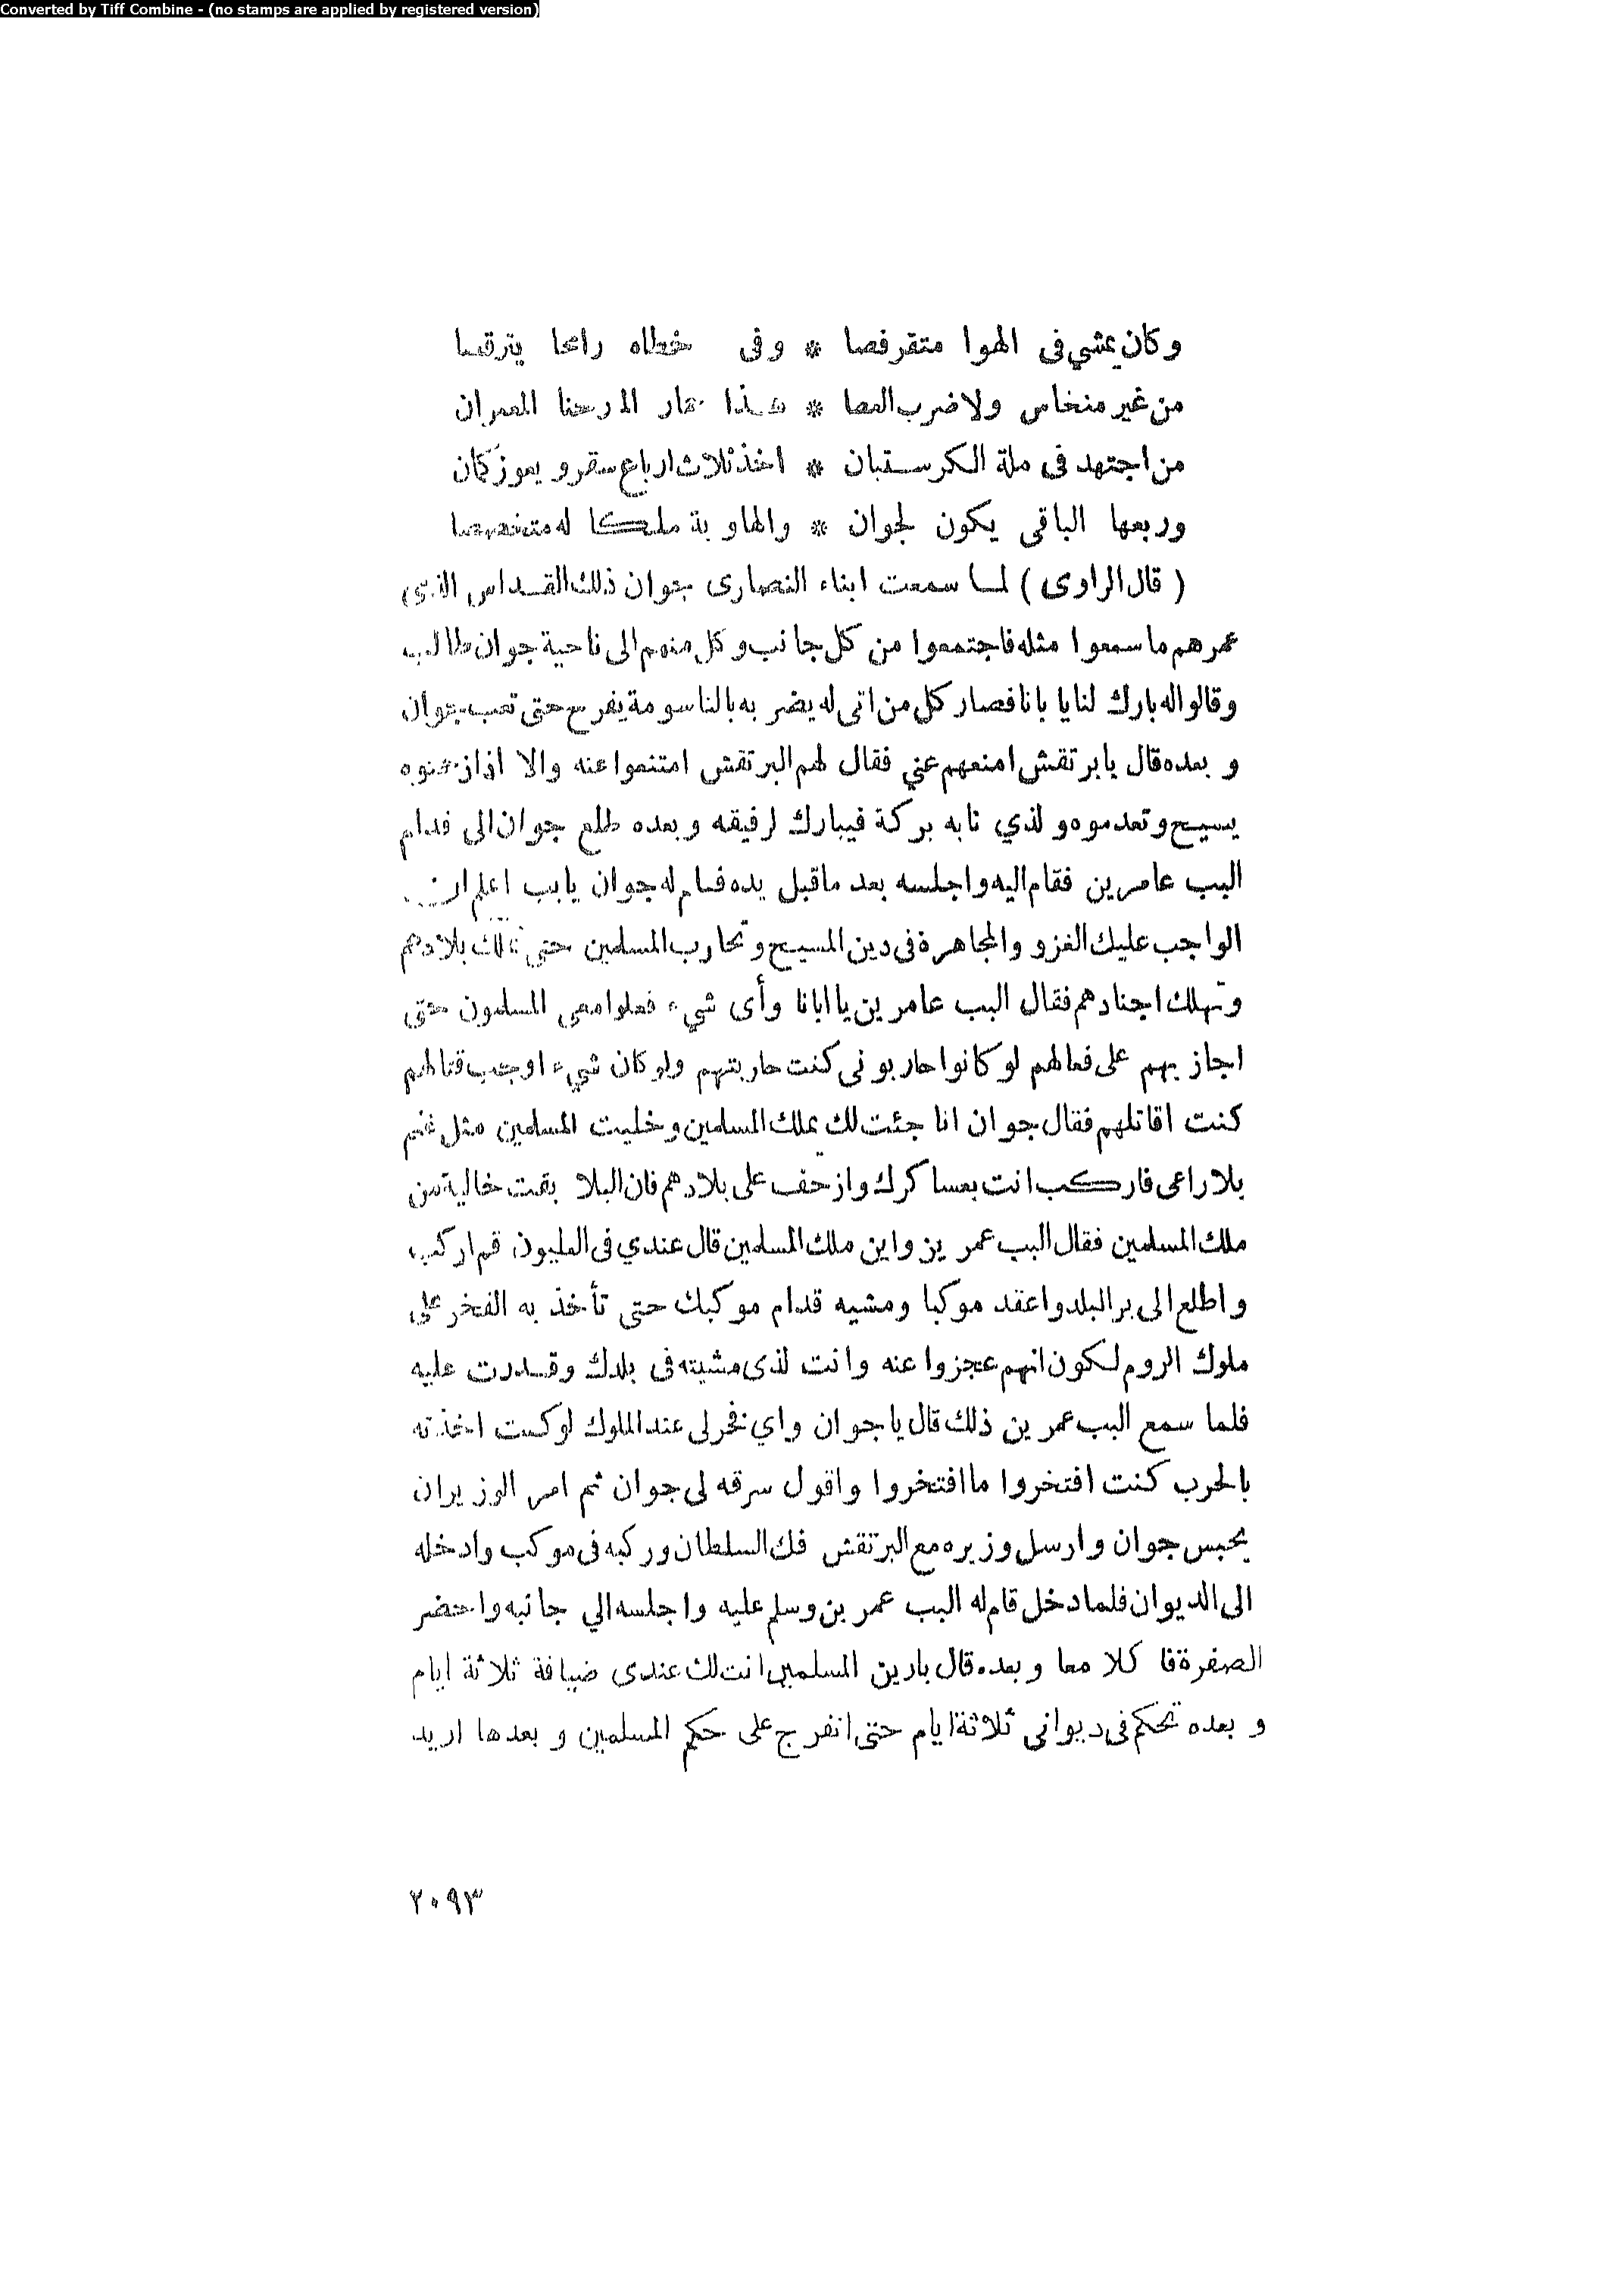 Converted by Tiff Combine - (no stamps are applied by registered version)
وكان يمشي فى الهوا متقرفصا * وفى خطاه رائحا يترقصا
من غير منخاس ولا ضرب العصا * هـذا حمار المارحنا المعمران
من اجتهد فى ملة الكرستيان * اخذ ثلاث ارباع سقر و يعوز كمان
وربعها الباقى يكون لجوان * والهاوية ملكا له متخصصا
( قال الراوى ) لما سمعت ابناء النصارى بجوان ذلك القداس الذى
عمرهم ما سمعوا مثله فاجتمعوا من كل جانب وكل منهم الى ناحية جوان طالب
وقالوا له بارك لنا يا بانا فصار كل من اتى له يضر به بالناسومة يفرح حتى تعب جوان
و بعده قال يا برتقش امنعهم عني فقال لهم البرتقش امتنعوا عنه والا اذا زحمتوه
يسيح وتعدموه و لذي نابه بركة فيبارك لرفيقه و بعده طلع جوان الى قدام
البب عامرين فقام اليه واجلسه بعد ما قبل يده فسلم له جوان يابب اعلم ان
الواجب عليك الغزو والمجاهرة فى دين المسيح و تحارب المسلمين حتى تملك بلادهم
وتهلك اجنادهم فقال البب عامرين يا ابانا وأى شيء فعلوا معى المسلمون حتى
اجازيهم على فعالهم لو كانوا حاربونى كنت حاربتهم ولو كان شيء اوجب قتالهم
كنت اقاتلهم فقال جوان انا جئت لك بملك المسلمين وخليت المسلمين مثل غنم
بلا راعى فاركب انت بعساكرك وازحف على بلادهم فان البلا بقت خالية من
ملك المسلمين فقال البب عمرين واين ملك المسلمين قال عندي فى الغليون قم اركب
واطلع الى بر البلد واعقد موكبا ومشيه قدام موكبك حتى تأخذ به الفخر على
ملوك الروم لكون انهم عجزوا عنه وانت لذى مشيته فى بلدك وقدرت عليه
فلما سمع البب عمرين ذلك قال يا جوان واي فخر لى عند الملوك لو كنت اخذته
بالحرب كنت افتخروا ما افتخروا واقول سرقه لى جوان ثم امر الوزير ان
يحبس جوان وارسل وزيره مع البرتقش فك السلطان وركبه فى موكب وادخله
الى الديوان فلما دخل قام له البب عمرين وسلم عليه واجلسه الي جانبه واحضر
الصفرة فا كلا معا وبعده قال يا رين المسلمين انت لك عندى ضيافة ثلاثة ايام
و بعده تحكم فى ديوانى ثلاثة ايام حتى اتفرج على حكم المسلمين و بعدها اريد
٢٠٩٣